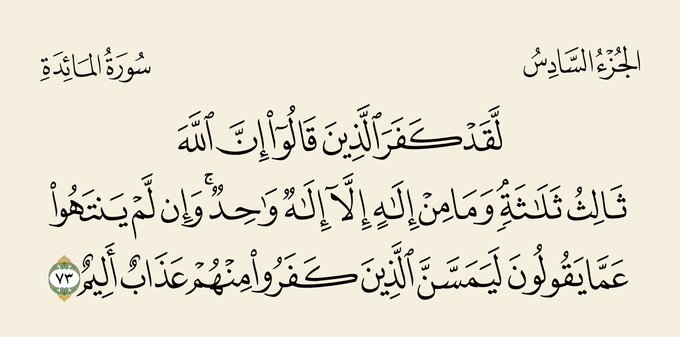 الجُزْءُ السَّادِسُ
سُورَةُ المَائِدَةِ
لَّقَدْ كَفَرَ ٱلَّذِينَ قَالُوٓا۟ إِنَّ ٱللَّهَ
ثَالِثُ ثَلَٰثَةٍۘ وَمَا مِنْ إِلَٰهٍ إِلَّآ إِلَٰهٌ وَٰحِدٌۚ وَإِن لَّمْ يَنتَهُوا۟
عَمَّا يَقُولُونَ لَيَمَسَّنَّ ٱلَّذِينَ كَفَرُوا۟ مِنْهُمْ عَذَابٌ أَلِيمٌ ٧٣